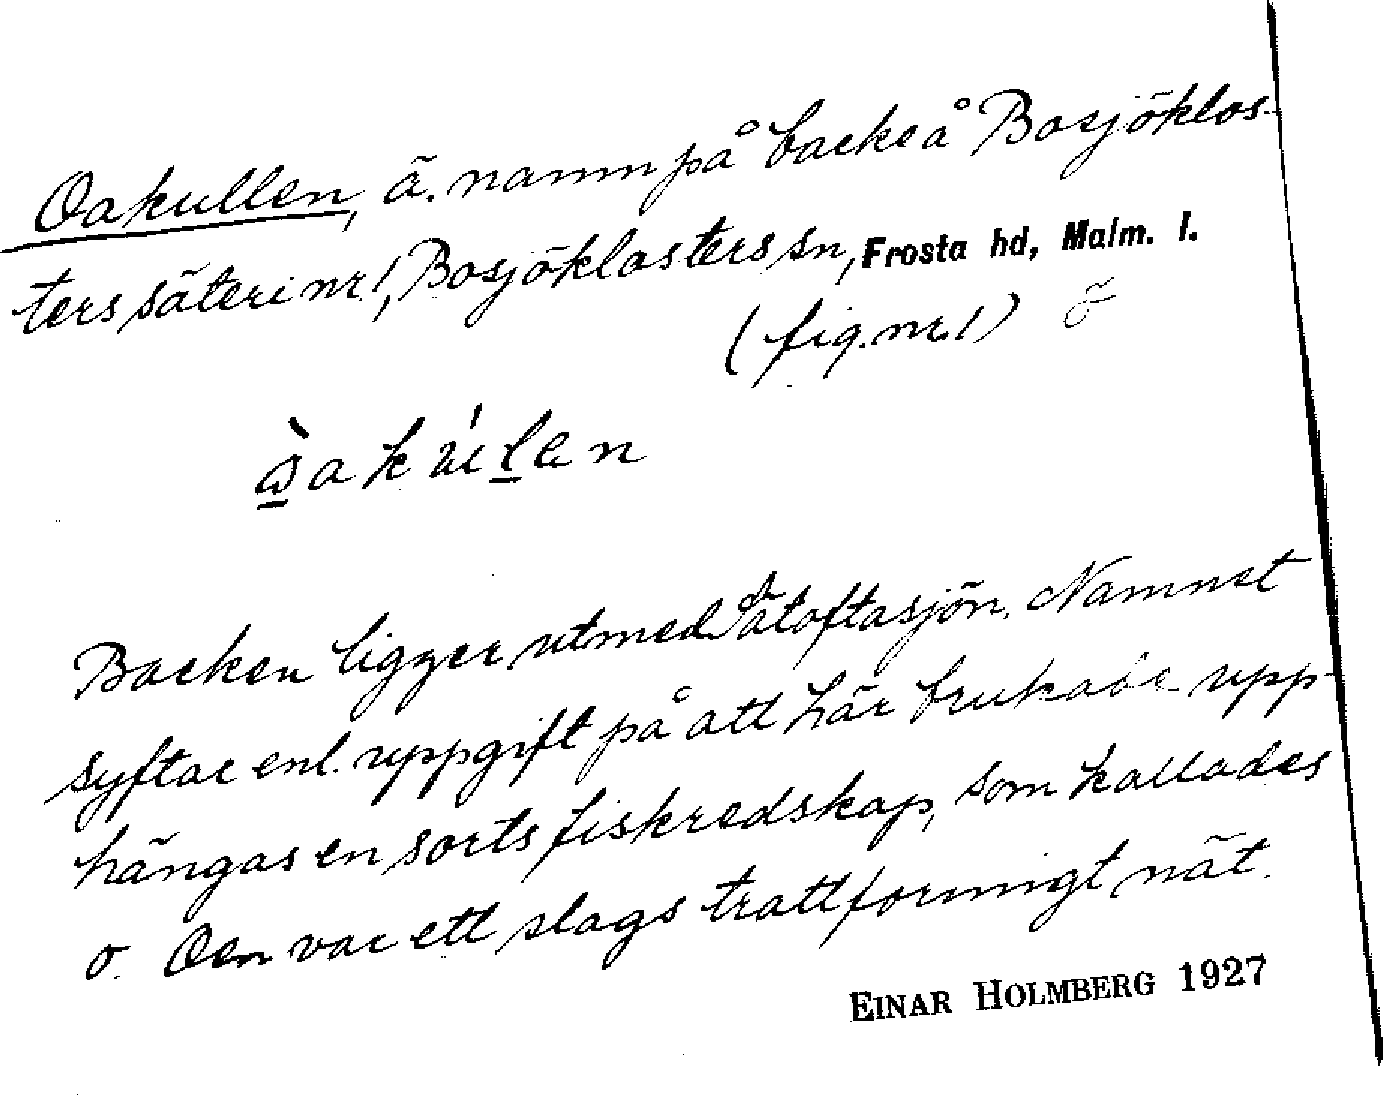 Oakullen, ä. namn på backe å Bosjöklos-
ters säteri nr 1, Bosjöklosters sn, Frosta hd, Malm. l.
(fig. nr. 1)
Backen ligger utmed Sätoftasjön. Namnet
syftar enl. uppgift på att här brukade upp-
hängas en sorts fiskredskap, som kallades
o. Den var ett slags trattformigt nät.
EINAR HOLMBERG 1927